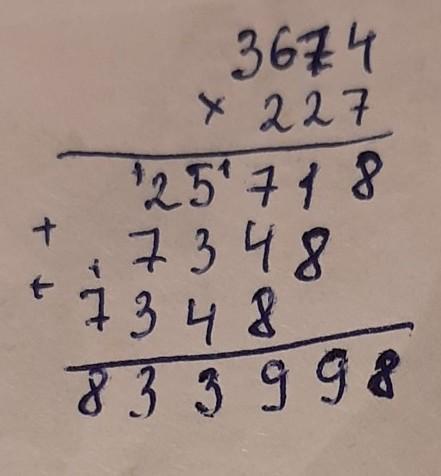 3674
× 227
25718
+ 7348
+ 7348
833998